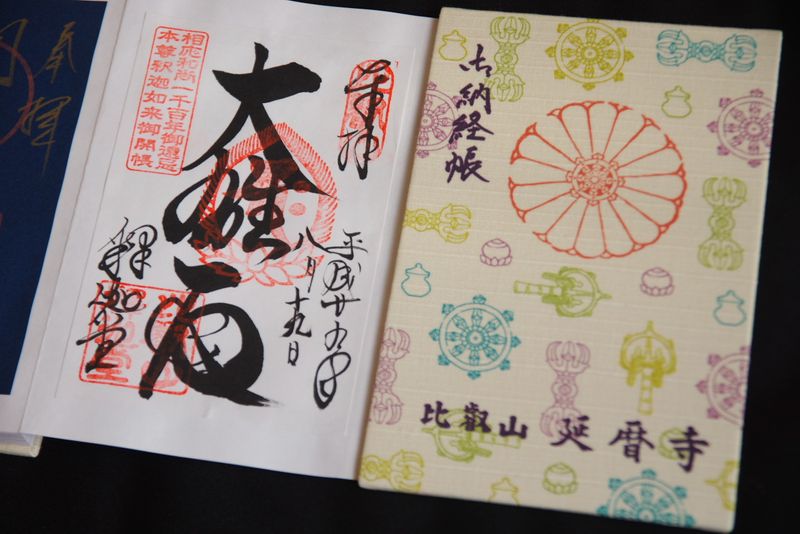 奉拝
奉拝
平成廿九年
八月十九日
大雄
相応和尚一千百年御遠忌
本尊釈迦如来御開帳
釋迦堂
御納経帳
比叡山 延暦寺